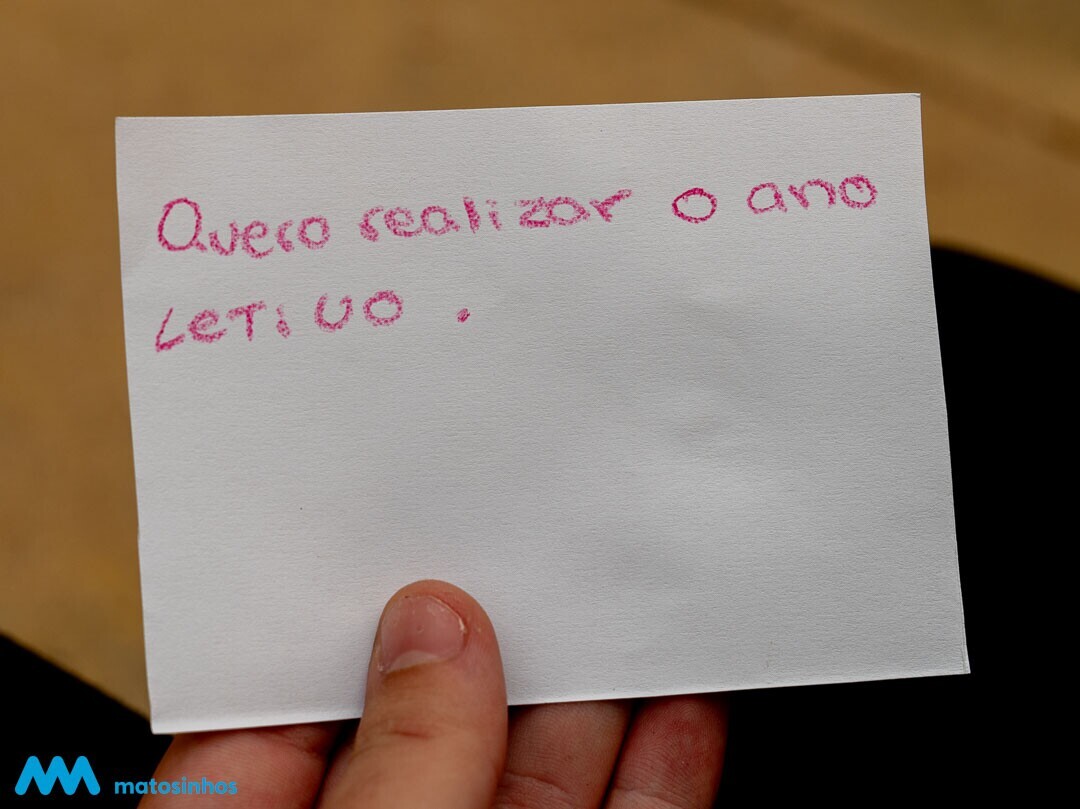 Quero realizar o ano
LETiVO .
matosinhos